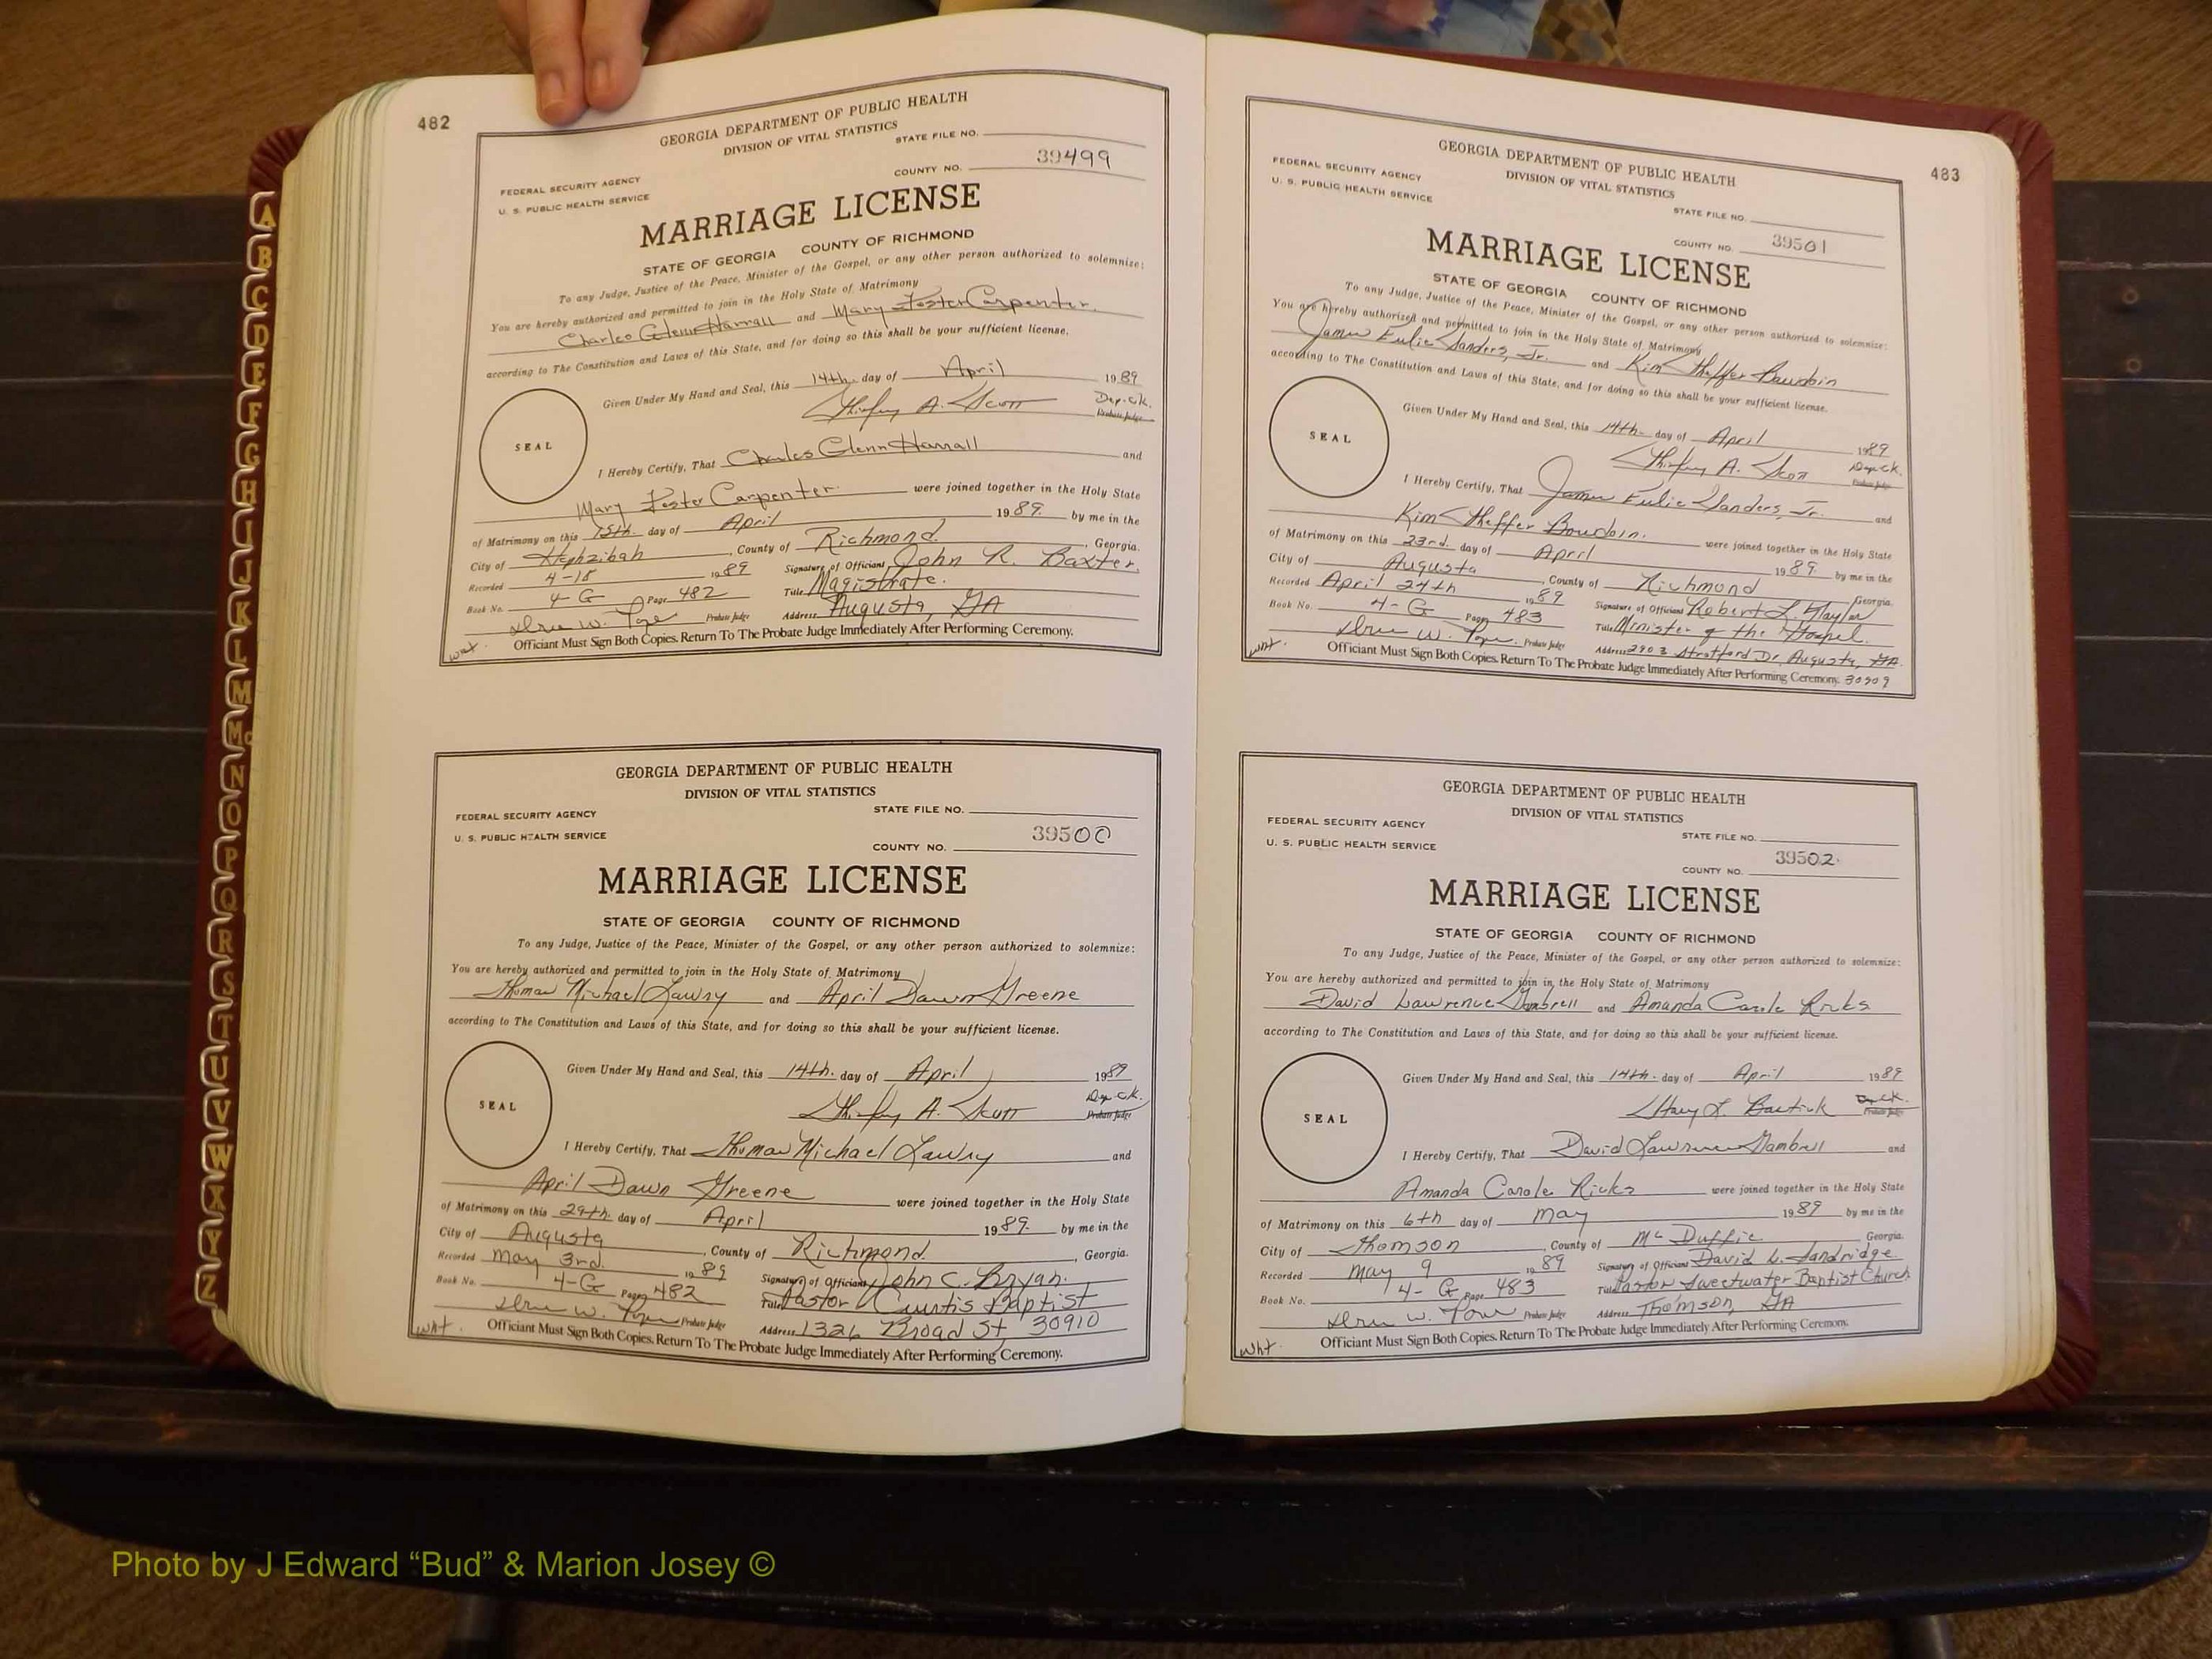 482
GEORGIA DEPARTMENT OF PUBLIC HEALTH
DIVISION OF VITAL STATISTICS
STATE FILE NO.
FEDERAL SECURITY AGENCY
U. S. PUBLIC HEALTH SERVICE
COUNTY NO. 39499
MARRIAGE LICENSE
STATE OF GEORGIA COUNTY OF RICHMOND
To any Judge, Justice of the Peace, Minister of the Gospel, or any other person authorized to solemnize:
You are hereby authorized and permitted to join in the Holy State of Matrimony
Charles Glenn Harrall and Mary Foster Carpenter
according to The Constitution and Laws of this State, and for doing so this shall be your sufficient license.
Given Under My Hand and Seal, this 14th day of April 1989
A. Scott Dep. Ck.
Probate Judge
SEAL
I Hereby Certify, That Charles Glenn Harrall and
Mary Foster Carpenter were joined together in the Holy State
of Matrimony on this 15th day of April 1989 by me in the
City of Hephzibah, County of Richmond, Georgia.
Recorded 4-18 1989 Signature of Officiant John R. Baxter
Book No. 4-G Page 482 Title Magistrate.
W. Pope Probate Judge Address Augusta, GA
wht.
Officiant Must Sign Both Copies. Return To The Probate Judge Immediately After Performing Ceremony.
GEORGIA DEPARTMENT OF PUBLIC HEALTH
DIVISION OF VITAL STATISTICS
FEDERAL SECURITY AGENCY STATE FILE NO.
U. S. PUBLIC HEALTH SERVICE
COUNTY NO. 39500
MARRIAGE LICENSE
STATE OF GEORGIA COUNTY OF RICHMOND
To any Judge, Justice of the Peace, Minister of the Gospel, or any other person authorized to solemnize:
You are hereby authorized and permitted to join in the Holy State of Matrimony
Thomas Michael Lawry and April Dawn Greene
according to The Constitution and Laws of this State, and for doing so this shall be your sufficient license.
Given Under My Hand and Seal, this 14th. day of April 1989
A. Scott Dep. Ck.
Probate Judge
SEAL
I Hereby Certify, That Thomas Michael Lawry and
April Dawn Greene were joined together in the Holy State
of Matrimony on this 29th. day of April 1989 by me in the
City of Augusta, County of Richmond, Georgia.
Recorded May 3rd 1989 Signature of Officiant John C. Bryan.
Book No. 4-G Page 482 Title Pastor Curtis Baptist
W. Pope Probate Judge Address 1326 Broad St. 30910
wht.
Officiant Must Sign Both Copies. Return To The Probate Judge Immediately After Performing Ceremony.
483
GEORGIA DEPARTMENT OF PUBLIC HEALTH
DIVISION OF VITAL STATISTICS
FEDERAL SECURITY AGENCY
U. S. PUBLIC HEALTH SERVICE
STATE FILE NO.
COUNTY NO. 39501
MARRIAGE LICENSE
STATE OF GEORGIA COUNTY OF RICHMOND
To any Judge, Justice of the Peace, Minister of the Gospel, or any other person authorized to solemnize:
You are hereby authorized and permitted to join in the Holy State of Matrimony
James Eulie Sanders, Jr. and Kim Sheffer Bowdoin
according to The Constitution and Laws of this State, and for doing so this shall be your sufficient license.
Given Under My Hand and Seal, this 14th. day of April 1989
A. Scott Dep Ck.
Probate Judge
SEAL
I Hereby Certify, That James Eulie Sanders, Jr. and
Kim Sheffer Bowdoin. were joined together in the Holy State
of Matrimony on this 23rd. day of April 1989 by me in the
City of Augusta, County of Richmond Georgia.
Recorded April 24th 1989 Signature of Officiant Robert L.
Book No. 4-G Page 483 Title Minister of the Gospel.
W. Pope Probate Judge Address 2903 Stratford Dr. Augusta, GA.
wht.
Officiant Must Sign Both Copies. Return To The Probate Judge Immediately After Performing Ceremony. 30909
GEORGIA DEPARTMENT OF PUBLIC HEALTH
DIVISION OF VITAL STATISTICS
FEDERAL SECURITY AGENCY STATE FILE NO.
U. S. PUBLIC HEALTH SERVICE
COUNTY NO. 39502
MARRIAGE LICENSE
STATE OF GEORGIA COUNTY OF RICHMOND
To any Judge, Justice of the Peace, Minister of the Gospel, or any other person authorized to solemnize:
You are hereby authorized and permitted to join in the Holy State of Matrimony
David Lawrence Gambrell and Amanda Carole Ricks
according to The Constitution and Laws of this State, and for doing so this shall be your sufficient license.
Given Under My Hand and Seal, this 14th. day of April 1989
Stacy L. Bastick Ck.
Probate Judge
SEAL
I Hereby Certify, That David Lawrence Gambrell and
Amanda Carole Ricks were joined together in the Holy State
of Matrimony on this 6th day of May 1989 by me in the
City of Thomson, County of McDuffie Georgia.
Recorded May 9 1989 Signature of Officiant David L. Sandridge
Book No. 4-G Page 483 Title Pastor Sweetwater Baptist Church
W. Pope Probate Judge Address Thomson, GA
wht.
Officiant Must Sign Both Copies. Return To The Probate Judge Immediately After Performing Ceremony.
A
B
C
D
E
F
G
H
I
J
K
L
M
Mc
N
O
P
Q
R
S
T
U
V
W
X
Y
Z
Photo by J Edward “Bud” & Marion Josey ©